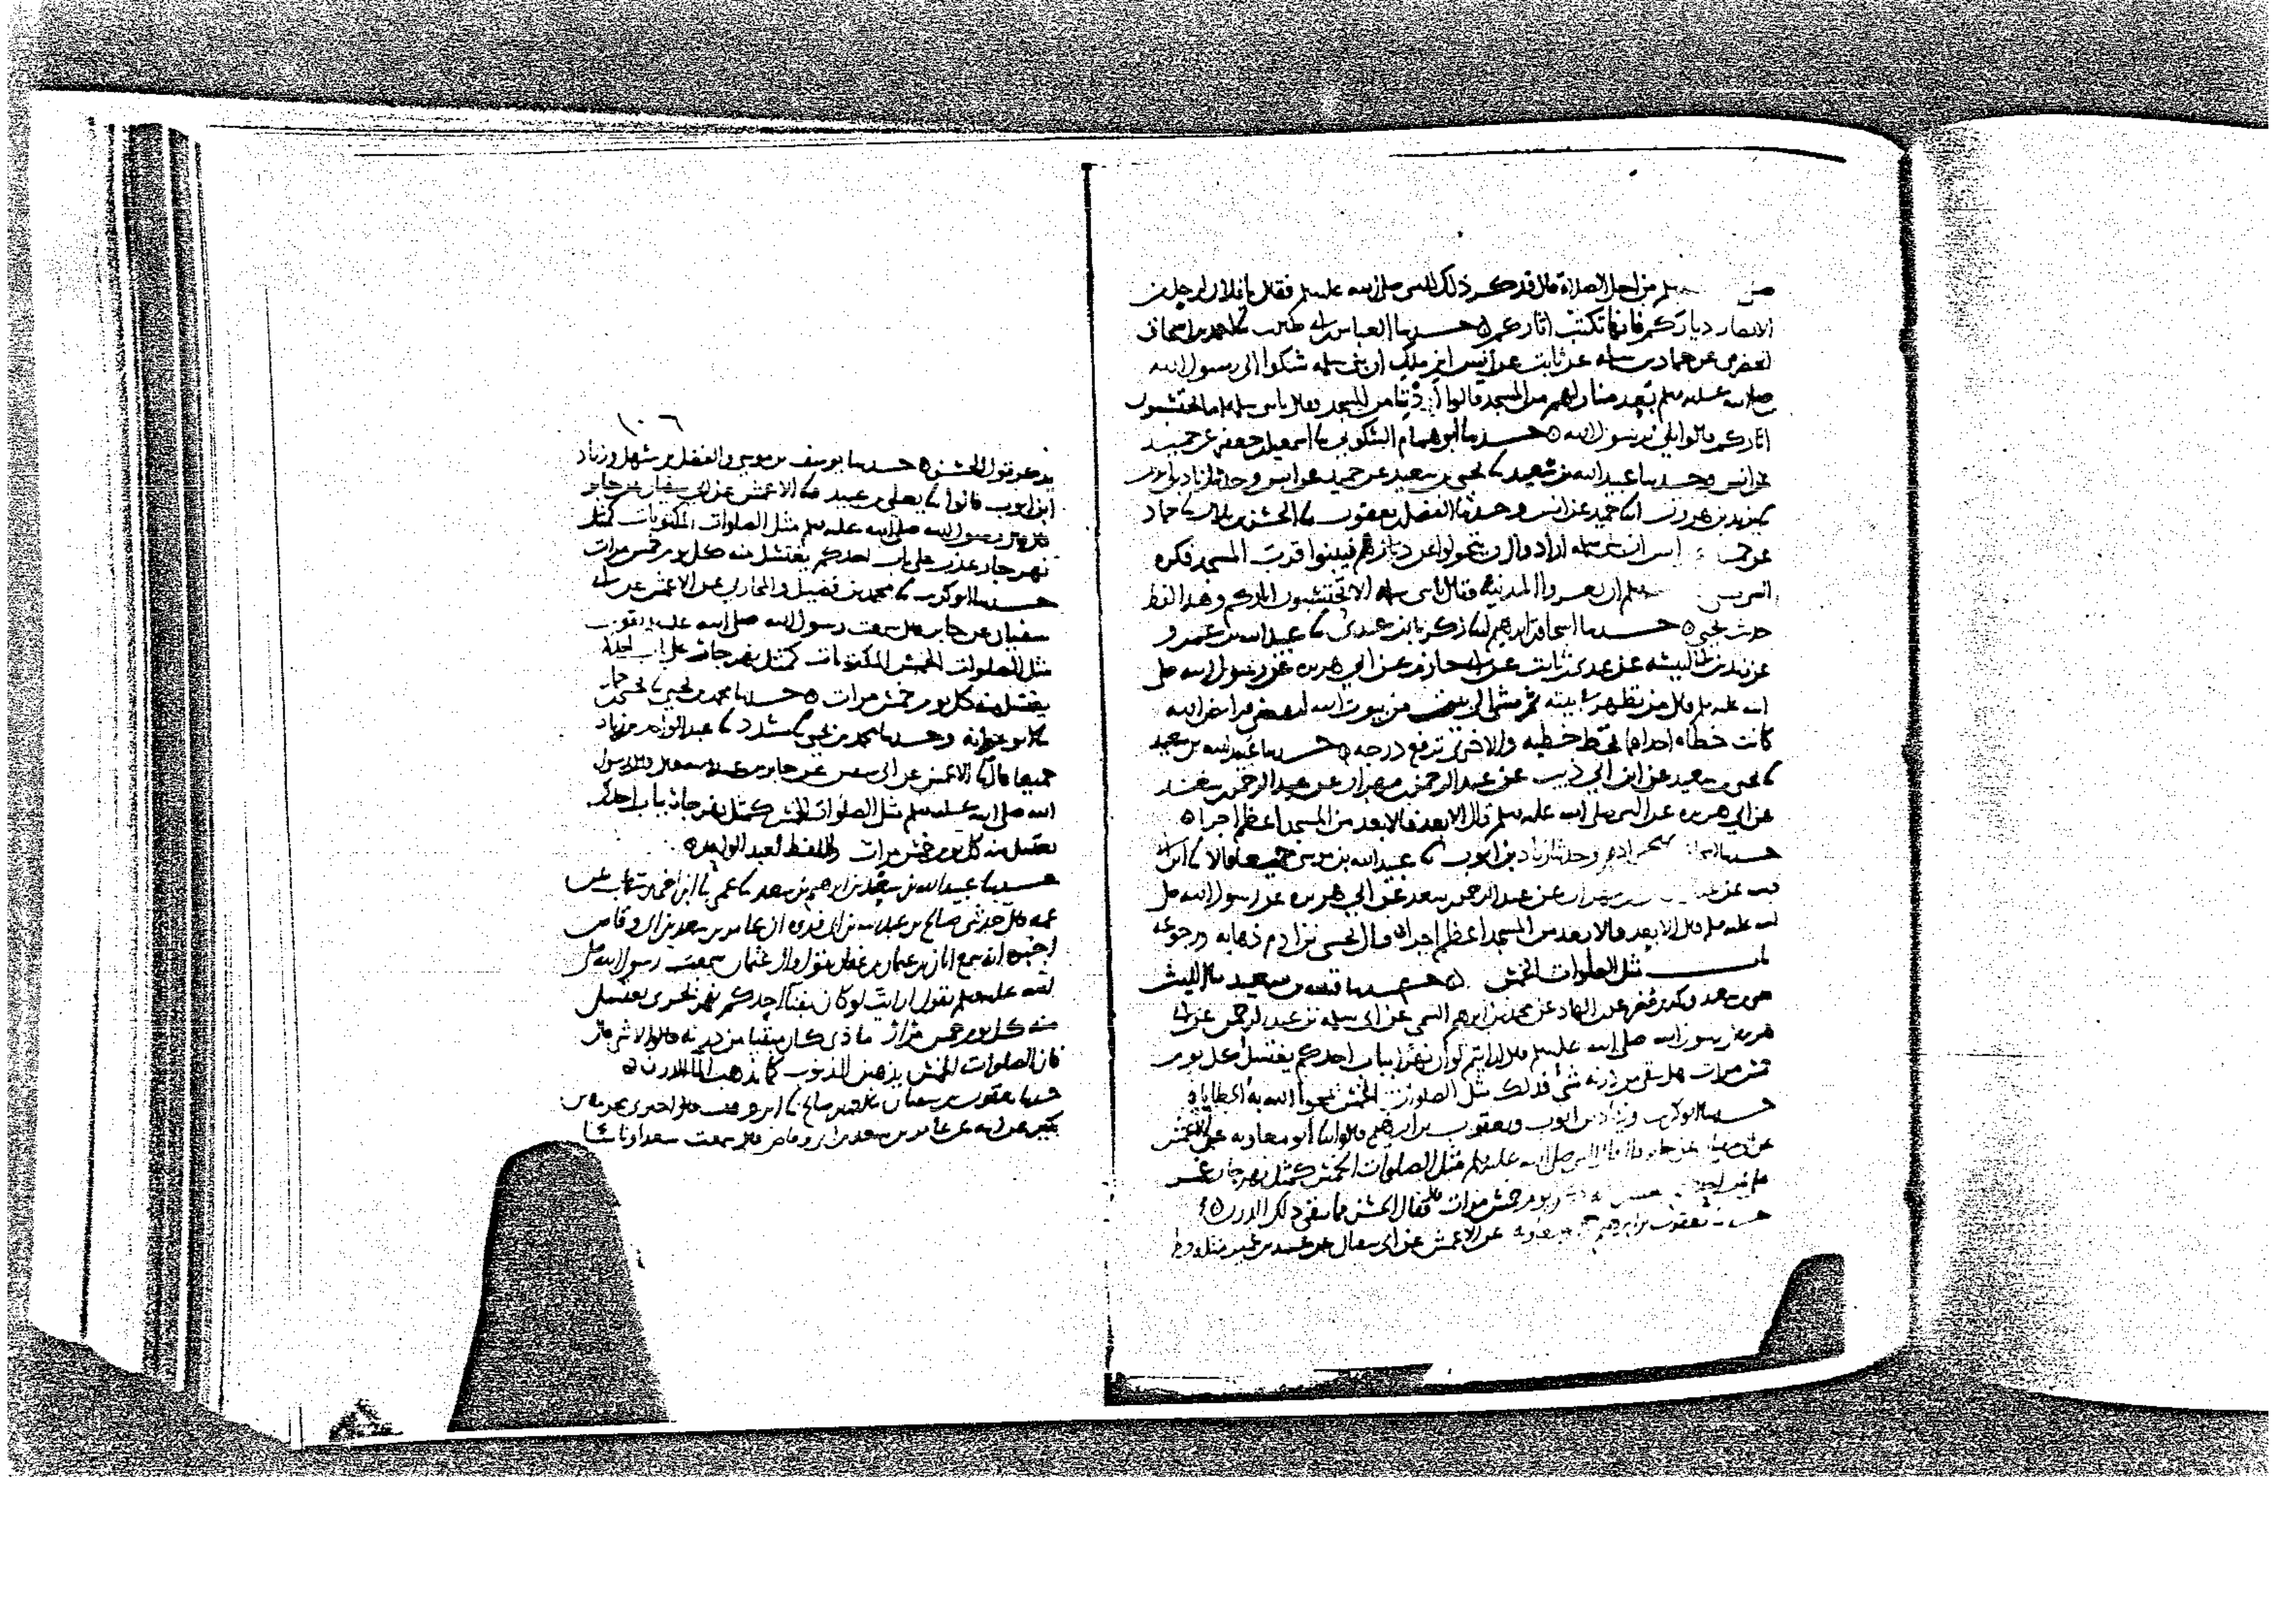 سلم من اجل الصلاة قال قد ذكر ذلك للنبي صلى الله عليه وسلم فقال يا فلان لرجل من
الانصار دياركم فانها تكتب اثاركم حدثنا العباس بن ابي طالب احمد بن اسحاق
الحضرمي عن حماد بن سلمه عن ثابت عن انس ابن ملك ان بني سلمه شكوا الى رسول الله
صلى الله عليه وسلم بعد منازلهم من المسجد قالوا من المسجد فقال يا بني سلمه اما تحتسبون
اثاركم قالوا بلى يرسول الله حدثنا ابو همام السكوني اسمعيل بن جعفر عن حميد
عن انس وحدثنا عبيد الله بن سعيد يحيى بن سعيد عن حميد عن انس وحدثنا زياد بن ايوب
يزيد بن هرون انا حميد عن انس وحدثنا الفضل بن يعقوب الحسن بن بلال حماد
عن حميد ان بني سلمه ارادوا ان يتحولوا عن ديارهم فيبنوا قرب المسجد فكره
سلم ان يعروا المدينة فقال يا بني سلمه الا تحتسبون اثاركم وهذا لفظ
حديث يحيى حدثنا اسحاق بن ابرهيم انا زكريا بن عدي عبيد الله بن عمرو
عن زيد بن ابي انيسه عن عدي بن ثابت عن ابي حازم عن ابي هريره عن رسول الله صلى
الله عليه وسلم قال من تطهر في بيته ثم مشى الى بيت من بيوت الله ليقضي فرائض الله
كانت خطاه احداها تحط خطيه والاخرى ترفع درجه حدثنا عبيد الله بن سعيد
يحيى بن سعيد عن ابن ابي ذيب عن عبد الرحمن بن مهران عن عبد الرحمن بن سعد
عن ابي هريره عن النبي صلى الله عليه وسلم قال الابعد فالابعد من المسجد اعظم اجرا
وحدثنا زياد بن ايوب عبيد الله بن موسى جميعا قالا ابن ابي
عن عبد الرحمن بن سعد عن ابي هريره عن رسول الله صلى
الله عليه وسلم قال الابعد فالابعد من المسجد اعظم اجرا وقال يحيى بن ادم ذهابه ورجوعه
باب مثل الصلوات الخمس حدثنا قتيبه بن سعيد الليث
هو بن سعد وبكر بن مضر عن ابن الهاد عن محمد بن ابرهيم التيمي عن ابي سلمه بن عبد الرحمن عن ابي
هريره عن رسول الله صلى الله عليه وسلم قال ارايتم لو ان نهرا بباب احدكم يغتسل كل يوم
خمس مرات هل يبقى من درنه شي فذلك مثل الصلوات الخمس يمحوا الله به الخطايا
حدثنا ابو كريب وزياد بن ايوب ويعقوب بن ابرهيم قالوا انا ابو معاويه عن الاعمش
عن ابي سفيان عن جابر قال قال النبي صلى الله عليه وسلم مثل الصلوات الخمس كمثل نهر جار غمر
يوم خمس مرات قال فقال الحسن فما يبقي ذلك الدرن
يعقوب بن ابرهيم معاويه عن الاعمش عن ابي سفيان عن عبيد بن عمير مثله ولم
١٠٦
يذكر قول الحسن حدثنا يوسف بن موسى والفضل بن سهل وزياد
ابن ايوب قالوا يعلى بن عبيد الاعمش عن ابي سفيان عن جابر
قال قال رسول الله صلى الله عليه وسلم مثل الصلوات المكتوبات كمثل
نهر جار عذب على باب احدكم يغتسل منه كل يوم خمس مرات
حدثنا ابو كريب محمد بن فضيل والمحاربي عن الاعمش عن ابي
سفيان عن جابر قال سمعت رسول الله صلى الله عليه يقول
مثل الصلوات الخمس المكتوبات كمثل نهر جار على باب احدكم
يغتسل منه كل يوم خمس مرات حدثنا محمد بن يحيى يحيى بن حماد
ابو عوانه وحدثنا محمد بن يحيى مسدد عبد الواحد بن زياد
جميعا قال الاعمش عن ابي سفين عن جابر بن عبد الله قال قال رسول
الله صلى الله عليه وسلم مثل الصلوات الخمس كمثل نهر جار بباب احدكم
يغتسل منه كل يوم خمس مرات واللفظ لعبد الواحد
حدثنا عبيد الله بن سعد بن ابرهيم بن سعد عمي ابن اخي بن شهاب عن
عمه قال حدثني صالح بن عبد الله بن ابي فروه ان عامر بن سعد بن ابي وقاص
اخبره انه سمع ابان بن عثمان بن عفان يقول قال عثمان سمعت رسول الله صلى
الله عليه وسلم يقول ارايت لو كان بفناء احدكم نهر يجري يغتسل
منه كل يوم خمس مرار ما ذي كان مبقيا من درنه قالوا لا شي قال
فان الصلوات الخمس يذهبن الذنوب كما يذهب الما الدرن
حدثنا يعقوب بن سفيان احمد بن صالح ابن وهب قال اخبرني مخرمه بن
بكير عن ابيه عن عامر بن سعد بن ابي وقاص قال سمعت سعدا وناسا